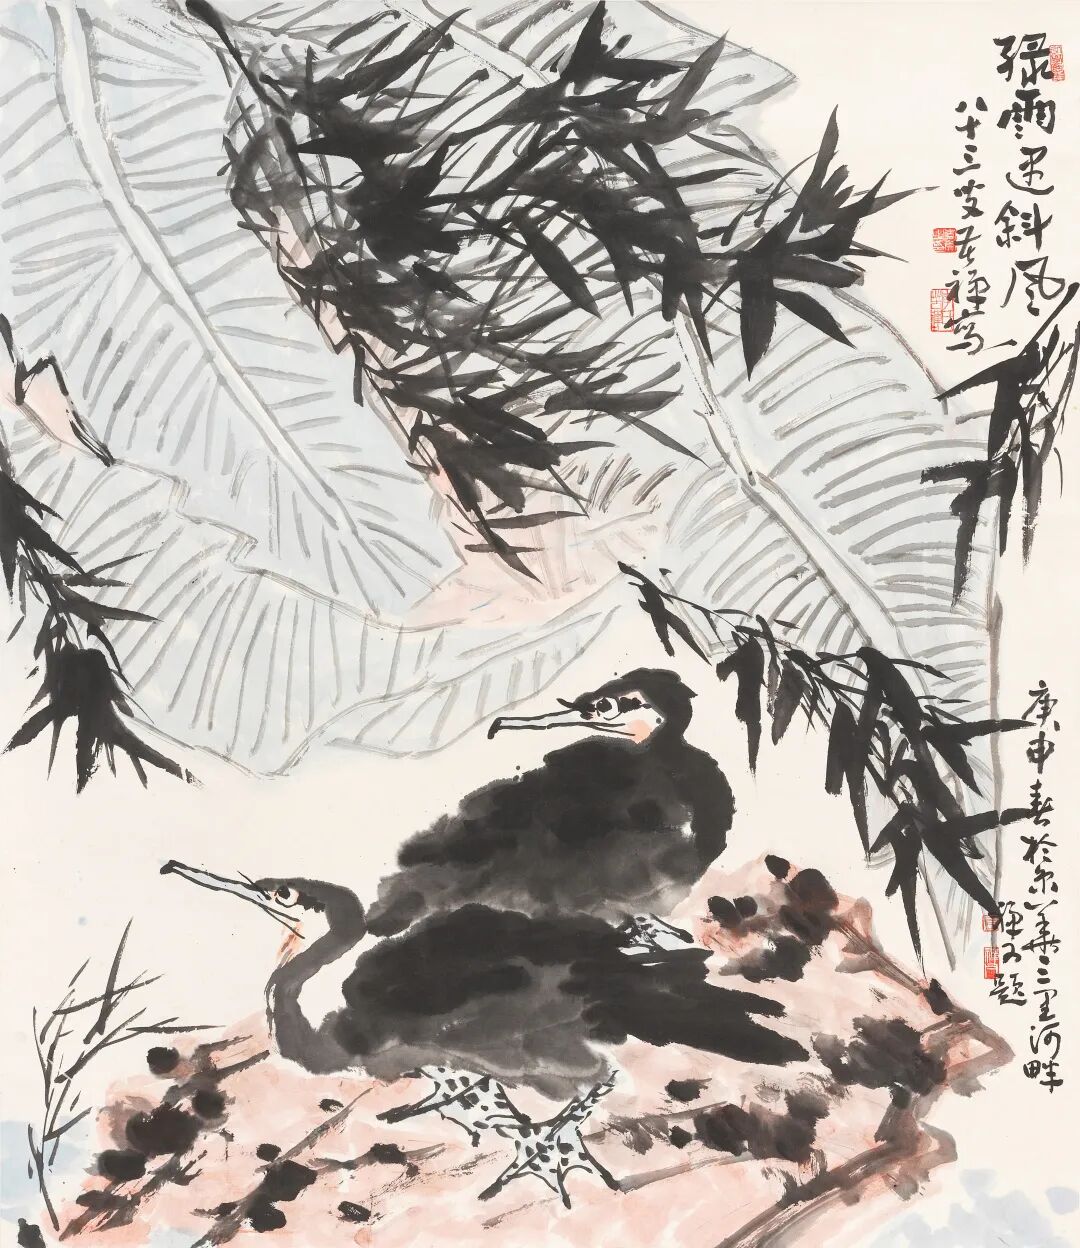 绿雨斜风
八十三叟苦禅写
庚申春於京华三里河畔
禅又题